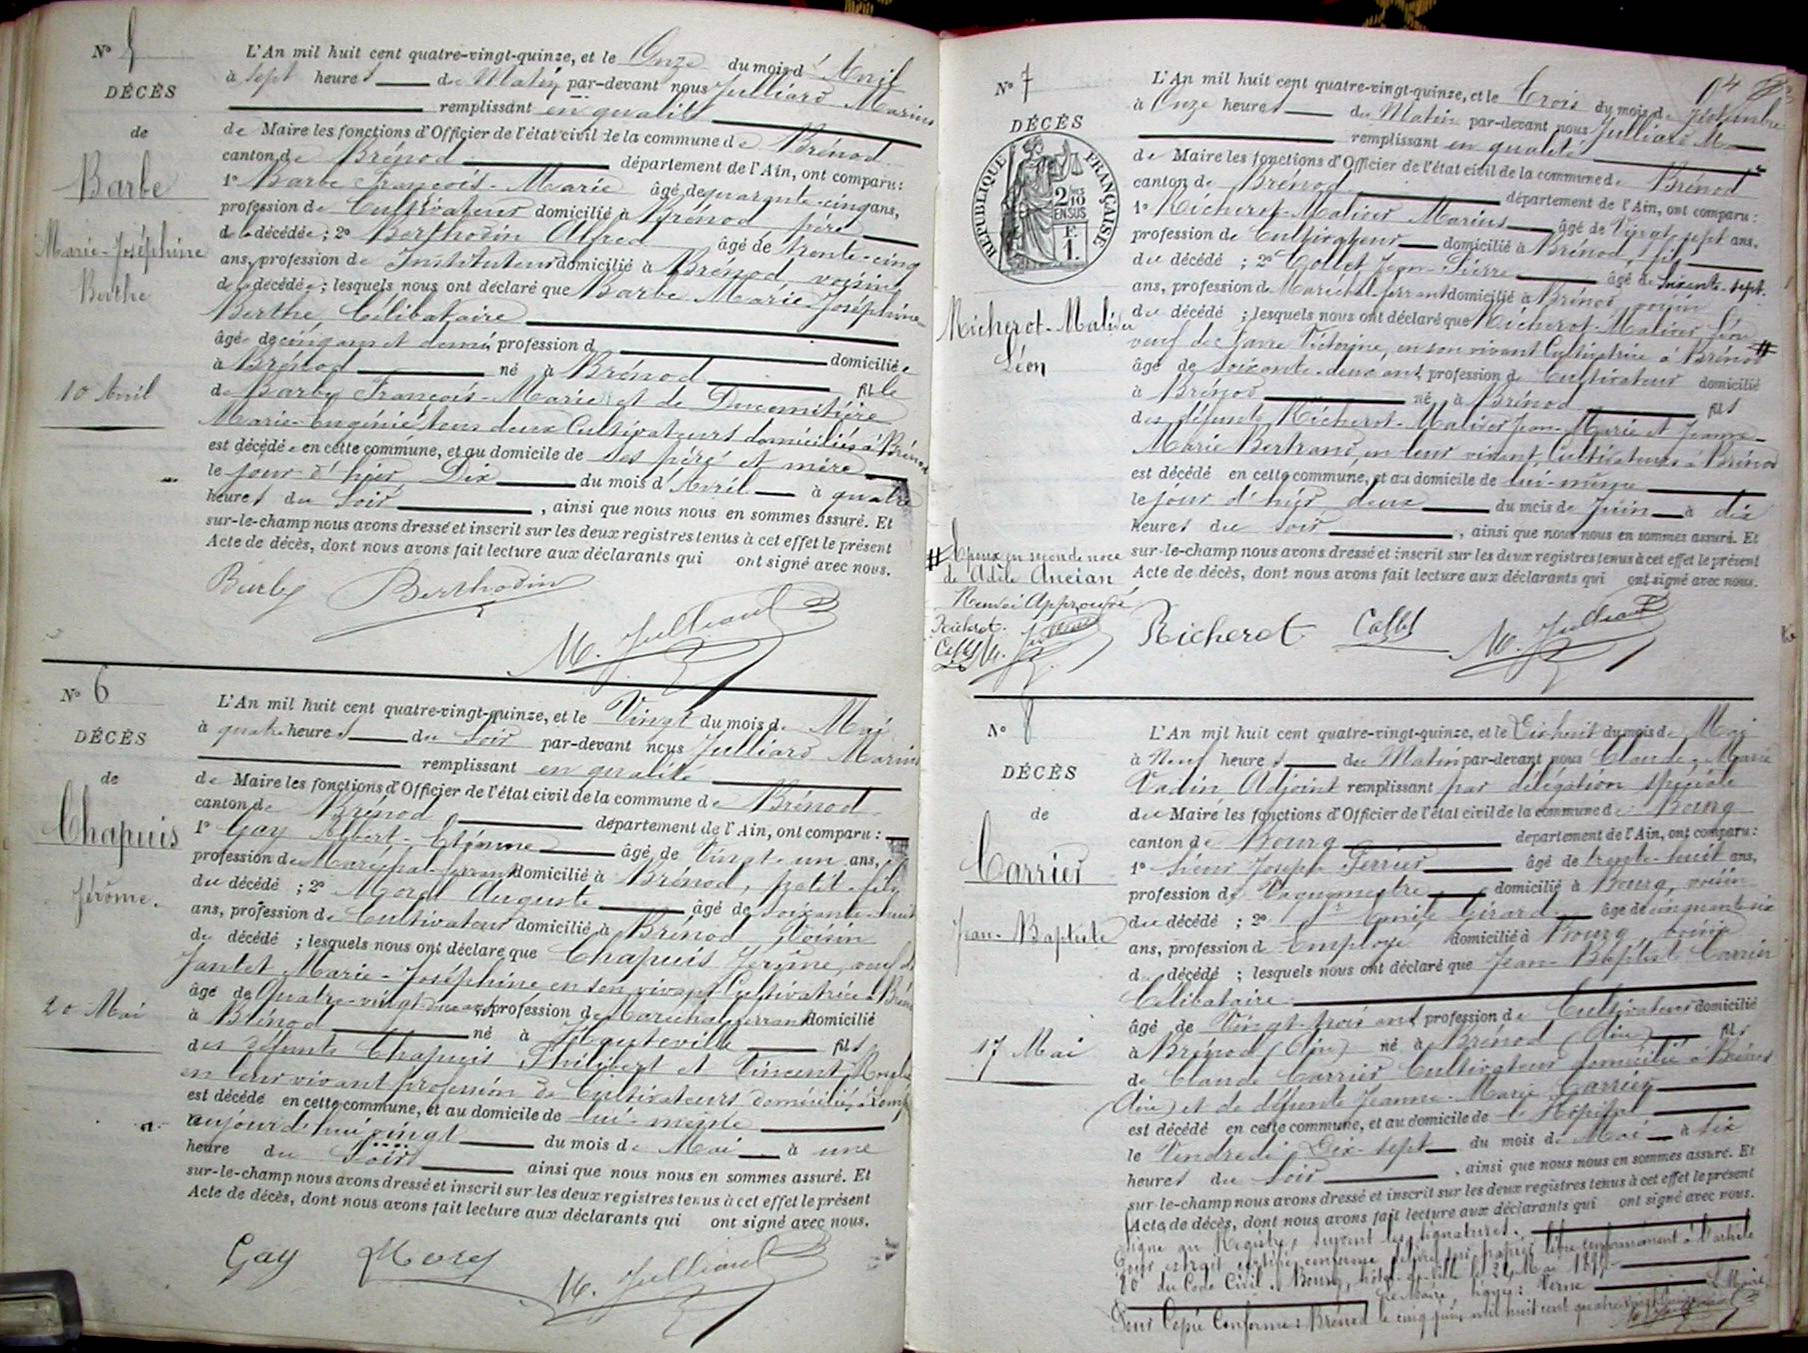 N° 5
DÉCÈS
de
Barbe
Marie-Joséphine
Berthe
10 Avril
L'An mil huit cent quatre-vingt-quinze, et le Onze du mois d'Avril
à sept heures du Matin par-devant nous Julliard Marius
remplissant en qualité
de Maire les fonctions d'Officier de l'état civil de la commune de Brénod
canton de Brénod département de l'Ain, ont comparu :
1° Barbe François-Marie âgé de quarante-cinq ans,
profession de Cultivateur domicilié à Brénod père
de la décédée ; 2° Berthodin Alfred âgé de trente-cinq
ans, profession de Instituteur domicilié à Brénod voisin
de la décédée ; lesquels nous ont déclaré que Barbe Marie Joséphine
Berthe Célibataire
âgée de cinq ans et demi, profession d domiciliée
à Brénod né à Brénod fille
de Barbe François-Marie et de Ducomitière
Marie-Eugénie tous deux Cultivateurs domiciliés à Brénod
est décédée en cette commune, et au domicile de ses père et mère
le jour d'hier, Dix du mois d'Avril à quatre
heures du Soir, ainsi que nous nous en sommes assuré. Et
sur-le-champ nous avons dressé et inscrit sur les deux registres tenus à cet effet le présent
Acte de décès, dont nous avons fait lecture aux déclarants qui ont signé avec nous.
Barbe Berthodin
M. Julliard
N° 6
DÉCÈS
de
Chapuis
Jérôme.
20 Mai
L'An mil huit cent quatre-vingt-quinze, et le Vingt du mois de Mai
à quatre heures du Soir par-devant nous Julliard Marius
remplissant en qualité
de Maire les fonctions d'Officier de l'état civil de la commune de Brénod
canton de Brénod département de l'Ain, ont comparu :
1° Gay Albert-Etienne âgé de Vingt-un ans,
profession de Maréchal-ferrant domicilié à Brénod, petit-fils
du décédé ; 2° Morel Auguste âgé de soixante-huit
ans, profession de Cultivateur domicilié à Brénod Voisin
du décédé ; lesquels nous ont déclaré que Chapuis Jérôme, veuf de
Jantet Marie-Joséphine en son vivant Cultivatrice à Brénod
âgé de Quatre-vingt ans, profession de Maréchal-ferrant domicilié
à Brénod né à Hauteville fils
des défunts Chapuis Philibert et Vincent
en leur vivant profession de Cultivateurs domiciliés à
est décédé en cette commune, et au domicile de lui-même
aujourd'hui vingt du mois de Mai à une
heure du Soir ainsi que nous nous en sommes assuré. Et
sur-le-champ nous avons dressé et inscrit sur les deux registres tenus à cet effet le présent
Acte de décès, dont nous avons fait lecture aux déclarants qui ont signé avec nous.
Gay Morel
M. Julliard
N° 7
DÉCÈS
RÉPUBLIQUE FRANÇAISE
2/10
EN SUS
F.
1.
Richerot-Maliver
Léon
# Epoux en seconde noce
de Adèle Ancian
Renvoi Approuvé
Richerot.
Collet M. Julliard
L'An mil huit cent quatre-vingt-quinze, et le Trois du mois de
à Onze heures du Matin par-devant nous Julliard M
remplissant en qualité
de Maire les fonctions d'Officier de l'état civil de la commune de Brénod
canton de Brénod département de l'Ain, ont comparu :
1° Richerot-Maliver Marius âgé de Vingt-sept ans.
profession de Cultivateur domicilié à Brénod fils
du décédé ; 2° Collet Jean-Pierre âgé de Soixante-sept.
ans, profession de Maréchal-ferrant domicilié à Brénod voisin
du décédé ; lesquels nous ont déclaré que Richerot-Maliver Léon
veuf de Victorine, en son vivant Cultivatrice à Brénod #
âgé de soixante-deux ans, profession de Cultivateur domicilié
à Brénod né à Brénod fils
des défunts Richerot-Maliver Jean-Marie et Jeanne-
Marie Bertrand en leur vivant Cultivateurs à Brénod
est décédé en cette commune, et au domicile de lui-même
le jour d'hier, deux du mois de Juin à dix
heures du Soir, ainsi que nous nous en sommes assuré. Et
sur-le-champ nous avons dressé et inscrit sur les deux registres tenus à cet effet le présent
Acte de décès, dont nous avons fait lecture aux déclarants qui ont signé avec nous.
Richerot Collet M. Julliard
N° 8
DÉCÈS
de
Carrier
Jean-Baptiste
17 Mai
L'An mil huit cent quatre-vingt-quinze, et le Dix huit du mois de Mai
à Neuf heures du Matin par-devant nous Claude-Marie
Vadin Adjoint remplissant par délégation spéciale
du Maire les fonctions d'Officier de l'état civil de la commune de Bourg
canton de Bourg département de l'Ain, ont comparu :
1° Sieur Joseph Perrier âgé de trente-huit ans,
profession de Vaguemestre domicilié à Bourg, voisin
du décédé ; 2° Emile Girard âgé de cinquante six
ans, profession d Employé domicilié à Bourg voisin
d décédé ; lesquels nous ont déclaré que Jean-Baptiste Carrier
Célibataire
âgé de Vingt-trois ans, profession de Cultivateur domicilié
à Brénod (Ain) né à Brénod (Ain) fils
de Claude Carrier Cultivateur domicilié à Brénod
(Ain) et de défunte Jeanne-Marie Carrier
est décédé en cette commune, et au domicile de l'Hôpital
le Vendredi Dix-sept du mois de Mai à six
heures du Soir, ainsi que nous nous en sommes assuré. Et
sur-le-champ nous avons dressé et inscrit sur les deux registres tenus à cet effet le présent
Acte de décès, dont nous avons fait lecture aux déclarants qui ont signé avec nous.
Signé au Registre, suivent les signatures.
Pour extrait certifié conforme délivré sur papier libre conformément à l'article
80 du Code Civil. Bourg, hôtel-de-ville le 24 Mai 1895
Le Maire signé : Verne Le Maire,
Pour Copie Conforme : Brénod le cinq juin mil huit cent quatre vingt quinze